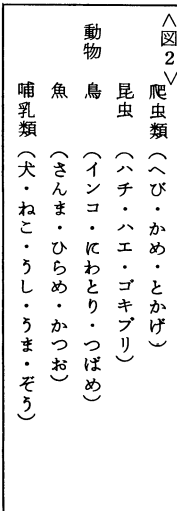 ＜図２＞
爬虫類（へび・かめ・とかげ）
昆虫（ハチ・ハエ・ゴキブリ）
動物　鳥（インコ・にわとり・つばめ）
魚（さんま・ひらめ・かつお）
哺乳類（犬・ねこ・うし・うま・ぞう）